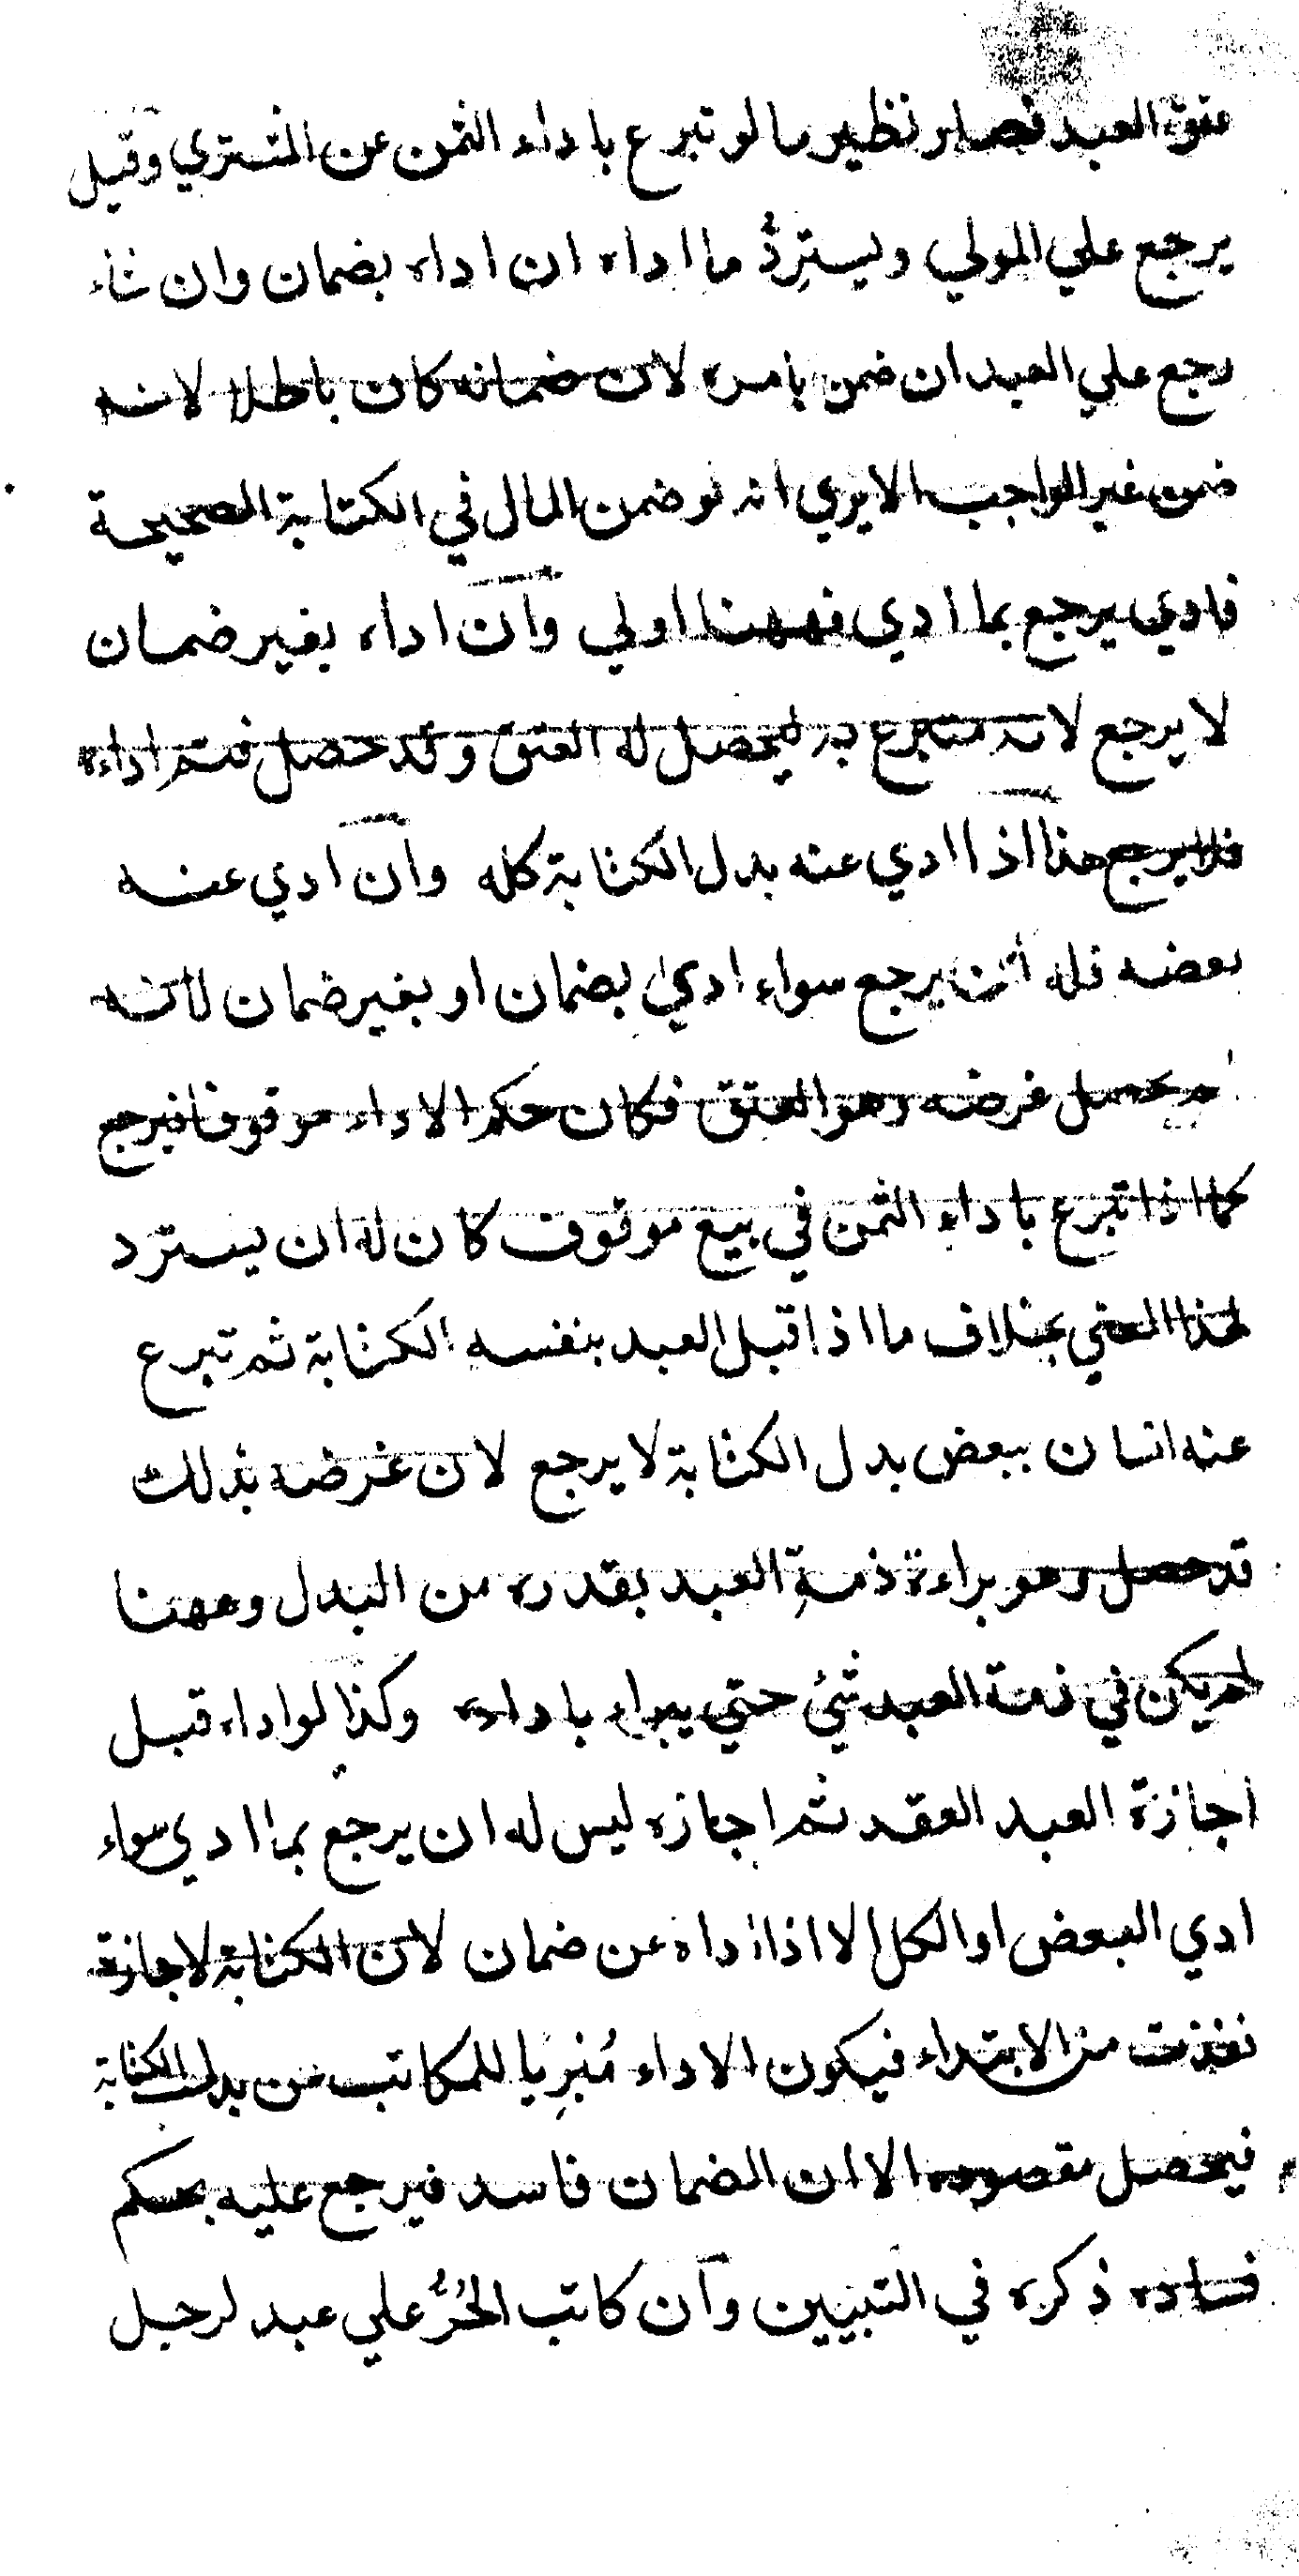 عتق العبد فصار نظير ما لو تبرع باداء الثمن عن المشتري وقيل
يرجع علي المولي ويستردُّ ما اداه ان اداه بضمان وان شاء
رجع علي العبد ان ضمن بامره لان ضمانه كان باطلا لانه
ضمن غير الواجب الا يري انه لو ضمن المال في الكتابة الصحيحة
فادي يرجع بما ادي فههنا اولي وان اداه بغير ضمان
لا يرجع لانه متبرع به ليحصل له العتق وقد حصل فتم اداءه
فلا يرجع هذا اذا ادي عنه بدل الكتابة كله وان ادي عنه
بعضه فله ان يرجع سواء ادي بضمان او بغير ضمان لانه
لم يحصل غرضه وهو العتق فكان حكم الاداء موقوفا فيرجع
كما اذا تبرع باداء الثمن في بيع موقوف كان له ان يسترد
لهذا المعني بخلاف ما اذا قبل العبد بنفسه الكتابة ثم تبرع
عنه انسان ببعض بدل الكتابة لا يرجع لان غرضه بذلك
قد حصل وهو براءة ذمةِ العبد بقدره من البدل وههنا
لم يكن في ذمة العبد شئ حتي يبراء باداءه وكذا لو اداه قبل
اجازة العبد العقد ثم اجازه ليس له ان يرجع بما ادي سواء
ادي البعض او الكل الا اذا اداه عن ضمان لان الكتابة لاجازة
نفذت من الابتداء فيكون الاداء مُبرِيا للمكاتب من بدل الكتابة
فيحصل مقصوده الا ان الضمان فاسد فيرجع عليه بحكم
فساده ذكره في التبيين وان كاتب الحُرُّ علي عبد لرجل